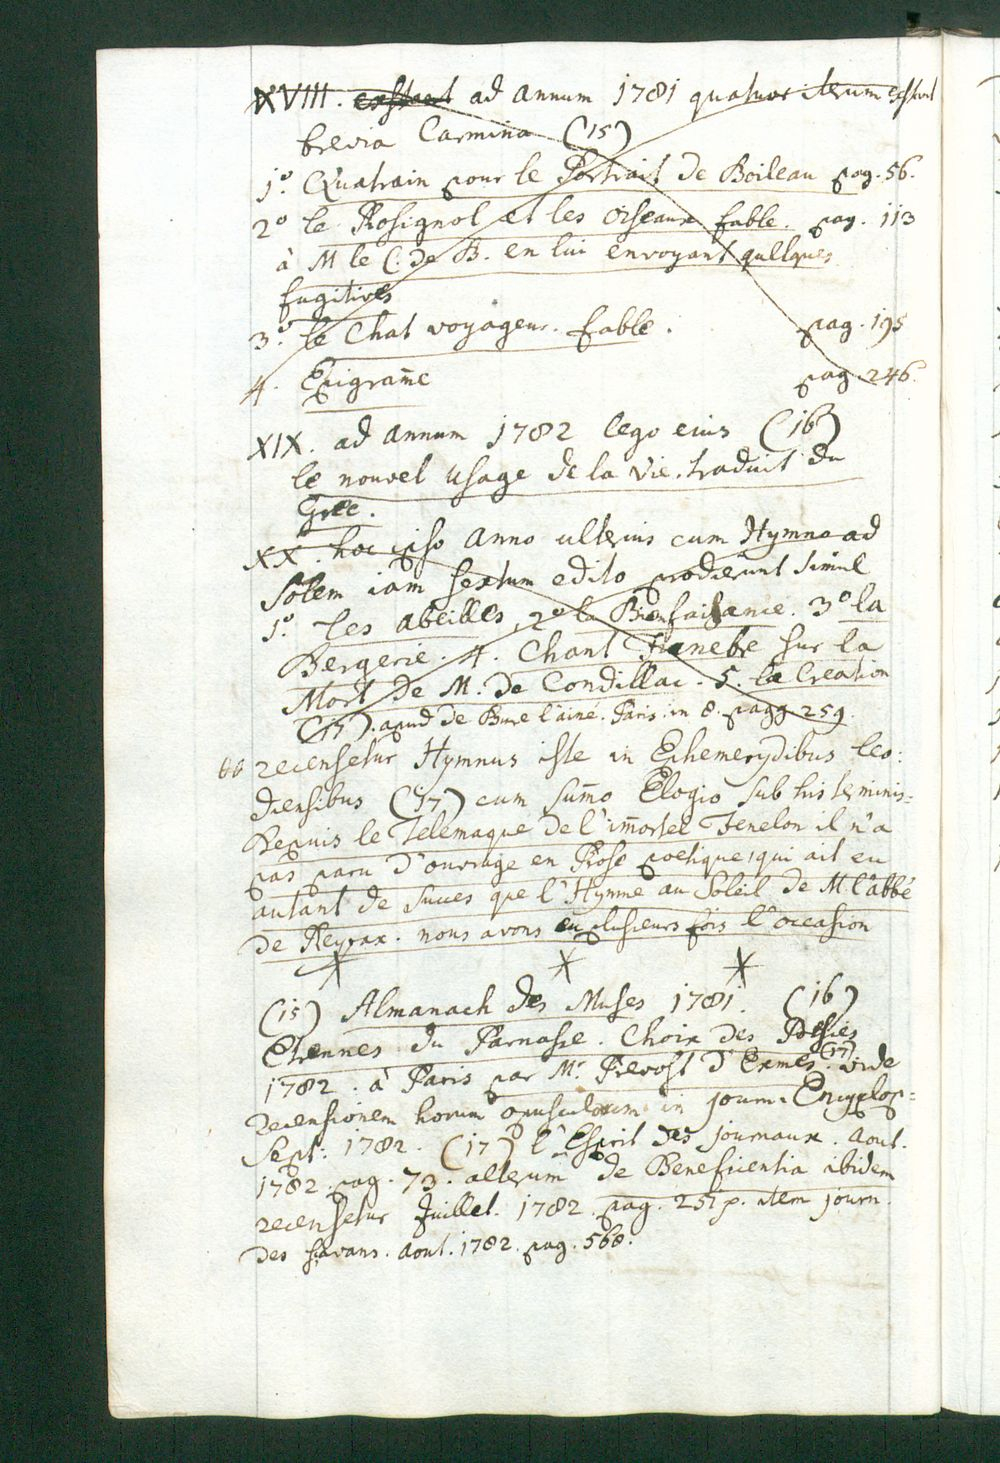 XVIII. extant ad annum 1781 quatuor iterum extant
brevia Carmina (15)
1º. Quatrain pour le Portrait de Boileau pag. 56.
2º le Rosignol et les oiseaux fable. pag. 113
à M le C. de B. en lui envoyant quelques
fugitives
3.º le Chat voyageur. fable. pag. 195
4. Epigram̄e pag. 246.
XIX. ad annum 1782 lego eius (16)
le nouvel usage de la vie. traduit du
Grec.
XX. hoc ipso anno ulterius cum Hymno ad
Solem iam sextum edito prodierunt simul
1º. les abeilles, 2º la Bienfaisance. 3º la
Bergerie. 4. Chant Funebre sur la
Mort de M. de Condillac. 5. la Creation
(17). apud de Bure l'ainé. Paris. in 8. pagg 259.
recensetur Hymnus iste in Ephemerydibus leo:
diensibus (17) cum sum̄o Elogio sub his terminis=
Depuis le Telemaque de l'im̄ortel Fenelon il n'a
pas paru d'ouvrage en Prose poetique, qui ait eu
autant de succes que l'Hymne au Soleil de M l'abbé
de Reyrax. nous avons eu plusieurs fois l'occasion
(15) Almanach des Muses 1781. (16)
Etrennes du Parnasse. Choix des Poesies
1782. à Paris par Mr Prevost d'Exmes. (17) vide
recensionem horum opusculorum in journ. Encyclop=
Sept: 1782. (17) l'Esprit des journaux. Aout.
1782. pag. 73. alterum de Beneficentia ibidem
recensetur Juillet. 1782. pag. 257. item journ.
des sçavans. Aout. 1782. pag. 568.